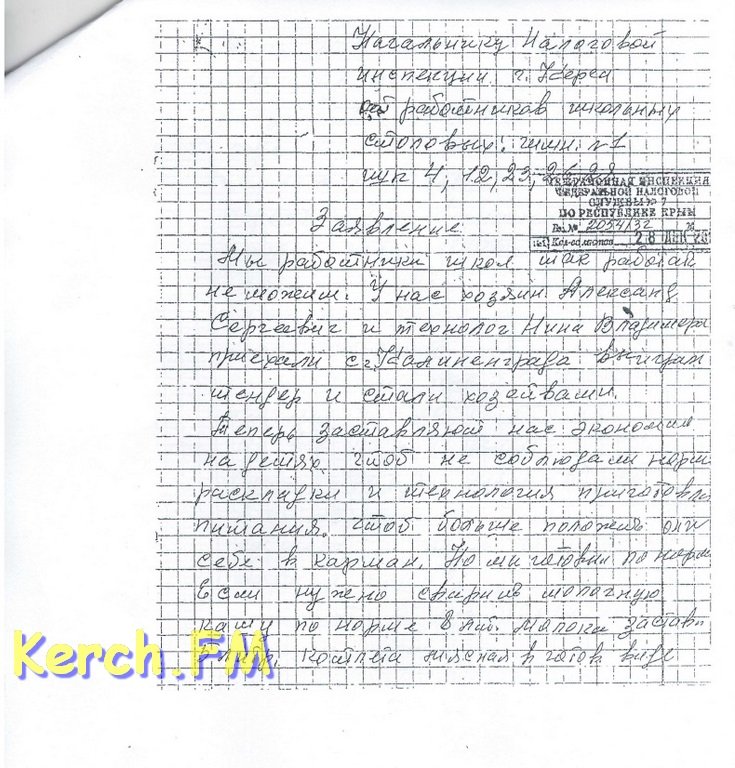 Начальнику Налоговой
инспекции г. Керчи
от работников школьных
столовых: гимн. №1
шк 4, 12, 23, 26, 28
МЕЖРАЙОННАЯ ИНСПЕКЦИЯ
ФЕДЕРАЛЬНОЙ НАЛОГОВОЙ
СЛУЖБЫ № 7
ПО РЕСПУБЛИКЕ КРЫМ
Вх. № 2054/32
Кол-во листов 28 ДЕК 20
Заявление
Мы работники школ так работать
не можем. У нас хозяин Александ
Сергеевич и технолог Нина Владимеро
приехали с г. Калиненграда выиграли
тендер и стали хозяйвами.
Теперь заставляют нас экономить
на детях, чтоб не соблюдали норм
раскладки и технология приготовлен
питания. чтоб больше положить они
себе в карман. Но ми готовим по норм
Если нужно сварить молочную
кашу по норме 8 лит. молока застав.
литр. котлета мясная в готов виде
Kerch.FM